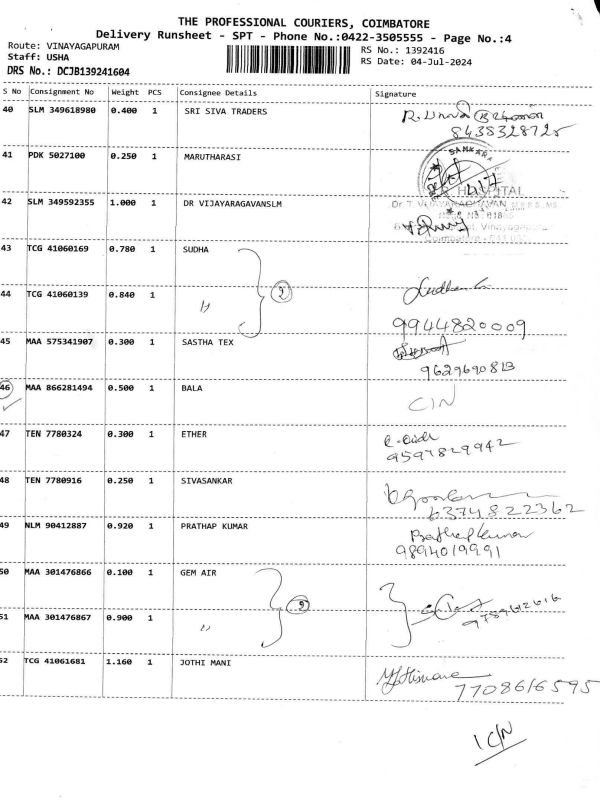 THE PROFESSIONAL COURIERS, COIMBATORE
Delivery Runsheet - SPT - Phone No.:0422-3505555 - Page No.:4
Route: VINAYAGAPURAM
RS No.: 1392416
Staff: USHA
RS Date: 04-Jul-2024
DRS No.: DCJB139241604
S No Consignment No Weight PCS Consignee Details Signature
40 SLM 349618980 0.400 1 SRI SIVA TRADERS
8438328725
41 PDK 5027100 0.250 1 MARUTHARASI
SANKARA
HOSPITAL
42 SLM 349592355 1.000 1 DR VIJAYARAGAVANSLM
43 TCG 41060169 0.780 1 SUDHA
2
44 TCG 41060139 0.840 1 "
9944820009
45 MAA 575341907 0.300 1 SASTHA TEX
9629690813
46 MAA 866281494 0.500 1 BALA C/N
47 TEN 7780324 0.300 1 ETHER
9597829942
48 TEN 7780916 0.250 1 SIVASANKAR
6374822362
49 NLM 90412887 0.920 1 PRATHAP KUMAR Prathap Kumar
9894019991
50 MAA 301476866 0.100 1 GEM AIR
2
51 MAA 301476867 0.900 1 "
52 TCG 41061681 1.160 1 JOTHI MANI
7708616595
1 C/N